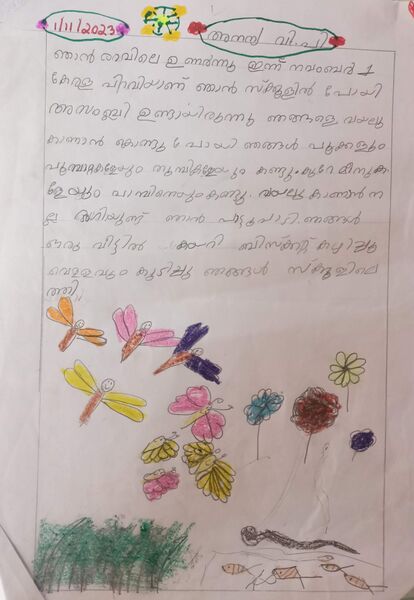 1/11/2023
അനന്യ വി.പി
ഞാൻ രാവിലെ ഉണർന്നു ഇന്ന് നവംബർ 1
കേരള പിറവിയാണ് ഞാൻ സ്കൂളിൻ പോയി
അസംബ്ലി ഉണ്ടായിരുന്നു ഞങ്ങളെ വയലു
കാണാൻ കൊണ്ടു പോയി ഞങ്ങൾ പൂക്കളും
പൂമ്പാറ്റകളേയും തുമ്പികളേയും കണ്ടു കുറേ മീനുക
ളേയും പാമ്പിനെയും കണ്ടു. വയലു കാണാൻ ന
ല്ല ഭംഗിയുണ്ട് ഞാൻ പാട്ടു പാടി. ഞങ്ങൾ
ഒരു വീട്ടിൽ കയറി ബിസ്ക്കറ്റ് കഴിച്ചു
വെള്ളവും കുടിച്ചു ഞങ്ങൾ സ്കൂളിലെ
ത്തി